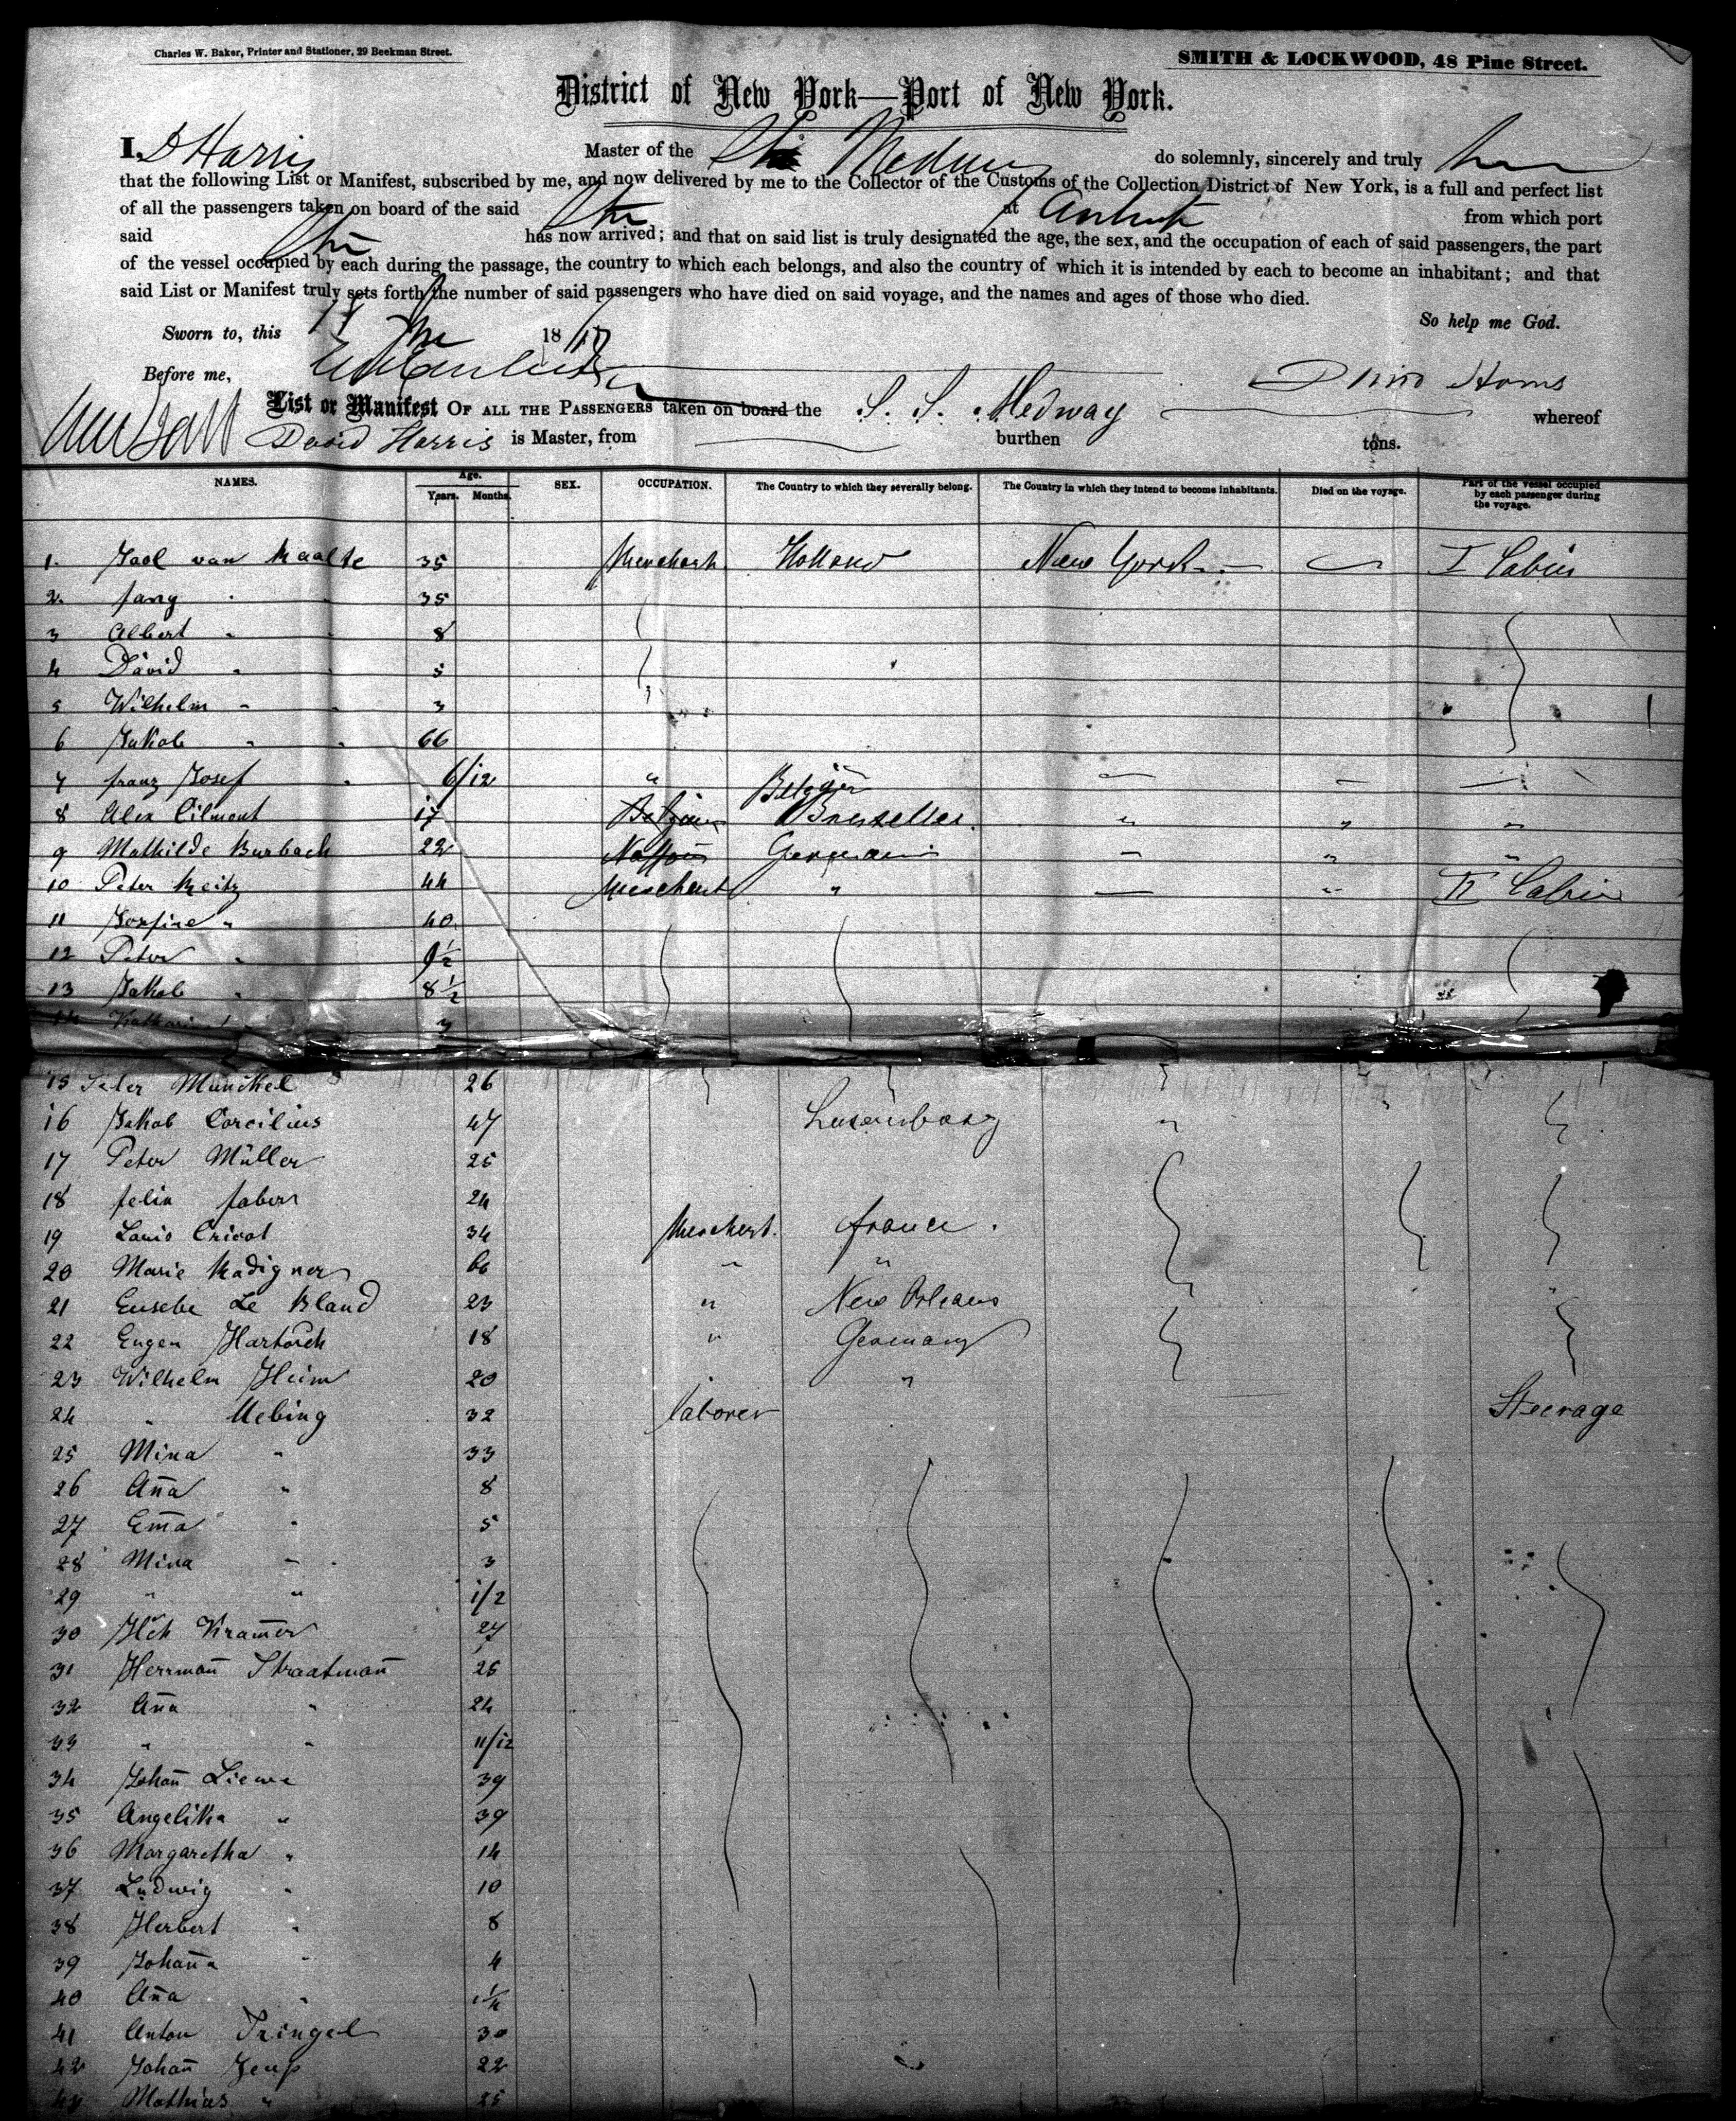 Charles W. Baker, Printer and Stationer, 29 Beekman Street.
SMITH & LOCKWOOD, 48 Pine Street.
District of New York—Port of New York.
I, D Harris Master of the do solemnly, sincerely and truly
that the following List or Manifest, subscribed by me, and now delivered by me to the Collector of the Customs of the Collection District of New York, is a full and perfect list
of all the passengers taken on board of the said at from which port
said has now arrived; and that on said list is truly designated the age, the sex, and the occupation of each of said passengers, the part
of the vessel occupied by each during the passage, the country to which each belongs, and also the country of which it is intended by each to become an inhabitant; and that
said List or Manifest truly sets forth the number of said passengers who have died on said voyage, and the names and ages of those who died.
So help me God.
Sworn to, this 18
Before me,
List or Manifest OF ALL THE PASSENGERS taken on board the S. S. Medway whereof
David Harris is Master, from burthen tons.
NAMES. Age. Years. Months. SEX. OCCUPATION. The Country to which they severally belong. The Country in which they intend to become inhabitants. Died on the voyage. Part of the vessel occupied by each passenger during the voyage.
1. van 35 Merchant Holland New York I Cabin
2. Fany " 35
3 Albert " 8
4 David " 5
5 Wilhelm " " 3
6 Jakob " " 66
7 Franz Josef " 6/12 " Belgien
8 Alex 17 Belgien Brusselles. " " "
9 Mathilde Burbach 22 Nassau " "
10 Peter 44 Merchant " " II Cabin
11 " 40
12 Peter " 9½
13 Jakob " 8½
14
15 Peter Münckel 26
16 Jakob Corcilius 47 Luxemburg "
17 Peter Müller 25
18 Felix 24
19 Louis 34 Merchant. France.
20 Marie " "
21 Eusebe Le Bland 23 " New Orleans
22 Eugen 18 " Germany
23 Wilhelm Heim 20 "
24 " Uebing 32 laborer Steerage
25 Mina " 33
26 Aña " 8
27 Em̄a " 5
28 Mina " 3
29 " " 1/2
30 Hch Kram̄er 27
31 Herrmañ Straatmañ 25
32 Aña " 24
33 " " 11/12
34 Johañ 39
35 Angelika " 39
36 Margaretha " 14
37 Ludwig " 10
38 Herbert " 8
39 Johaña " 4
40 Aña " 1¼
41 Anton 30
42 Johañ 22
43 Mathias " 25